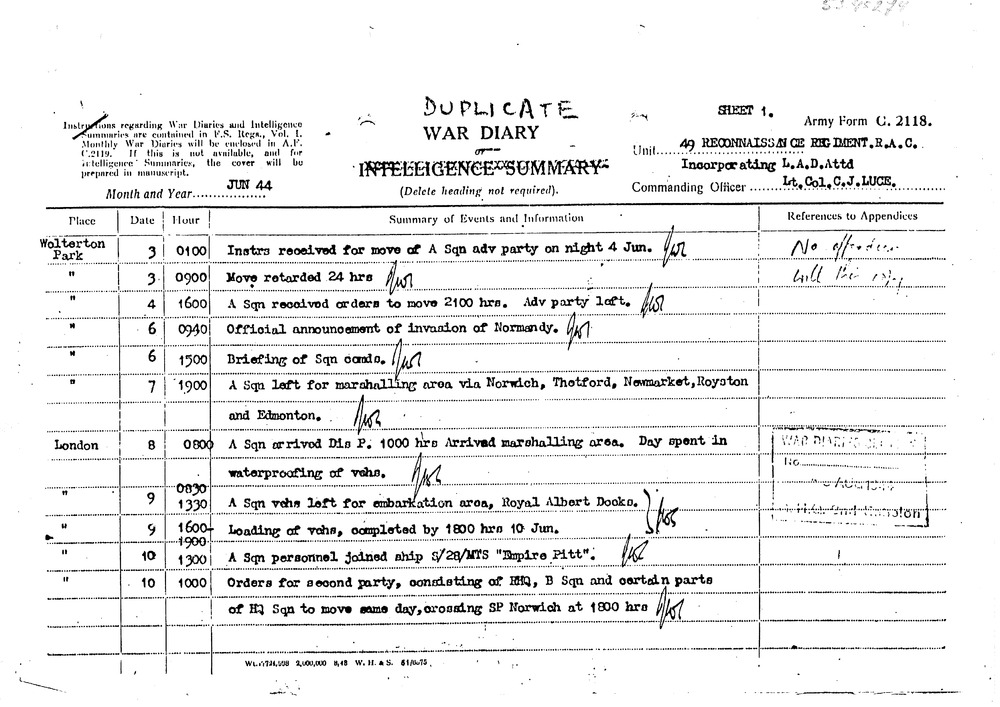 DUPLICATE
SHEET 1.
Army Form C. 2118.
Instructions regarding War Diaries and Intelligence
Summaries are contained in F.S. Regs., Vol. I.
Monthly War Diaries will be enclosed in A.F.
C.2119. If this is not available, and for
intelligence Summaries, the cover will be
prepared in manuscript.
Month and Year JUN 44
WAR DIARY
or
INTELLIGENCE SUMMARY
(Delete heading not required).
Unit 49 RECONNAISSANCE REGIMENT.R.A.C.
Incorporating L.A.D.Attd
Commanding Officer Lt.Col.C.J.LUCE.
Place Date Hour Summary of Events and Information References to Appendices
Wolterton
Park 3 0100 Instrs received for move of A Sqn adv party on night 4 Jun. No
" 3 0900 Move retarded 24 hrs will this
" 4 1600 A Sqn received orders to move 2100 hrs. Adv party left.
" 6 0940 Official announcement of invasion of Normandy.
" 6 1500 Briefing of Sqn comds.
" 7 1900 A Sqn left for marshalling area via Norwich, Thetford, Newmarket,Royston
and Edmonton.
London 8 0800 A Sqn arrived Dis P. 1000 hrs Arrived marshalling area. Day spent in
waterproofing of vehs.
" 9 0830
1330 A Sqn vehs left for embarkation area, Royal Albert Docks.
" 9 1600-
1900 Loading of vehs, completed by 1800 hrs 10 Jun.
" 10 1300 A Sqn personnel joined ship S/28/MTS "Empire Pitt".
" 10 1000 Orders for second party, consisting of RHQ, B Sqn and certain parts
of HQ Sqn to move same day,crossing SP Norwich at 1800 hrs
WAR DIARIES
No
AUG 1944
G.H.Q. 2nd Echelon
2,000,000 8/43 W. H. & S. 51/6375